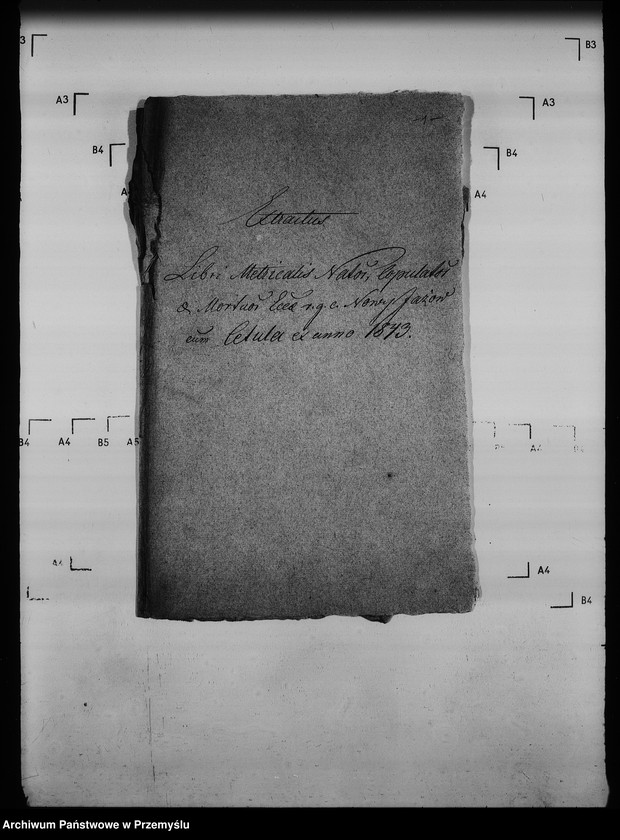 B3
A3
A3
B4
B4
A4
Extractus
Libri Metricalis Nator, Copulator
& Mortuor Eccl. r. g. c. Nowy Jażow
cum Cetula ex anno 1873.
B4 A4 B5 A5
A4
B4
Archiwum Państwowe w Przemyślu